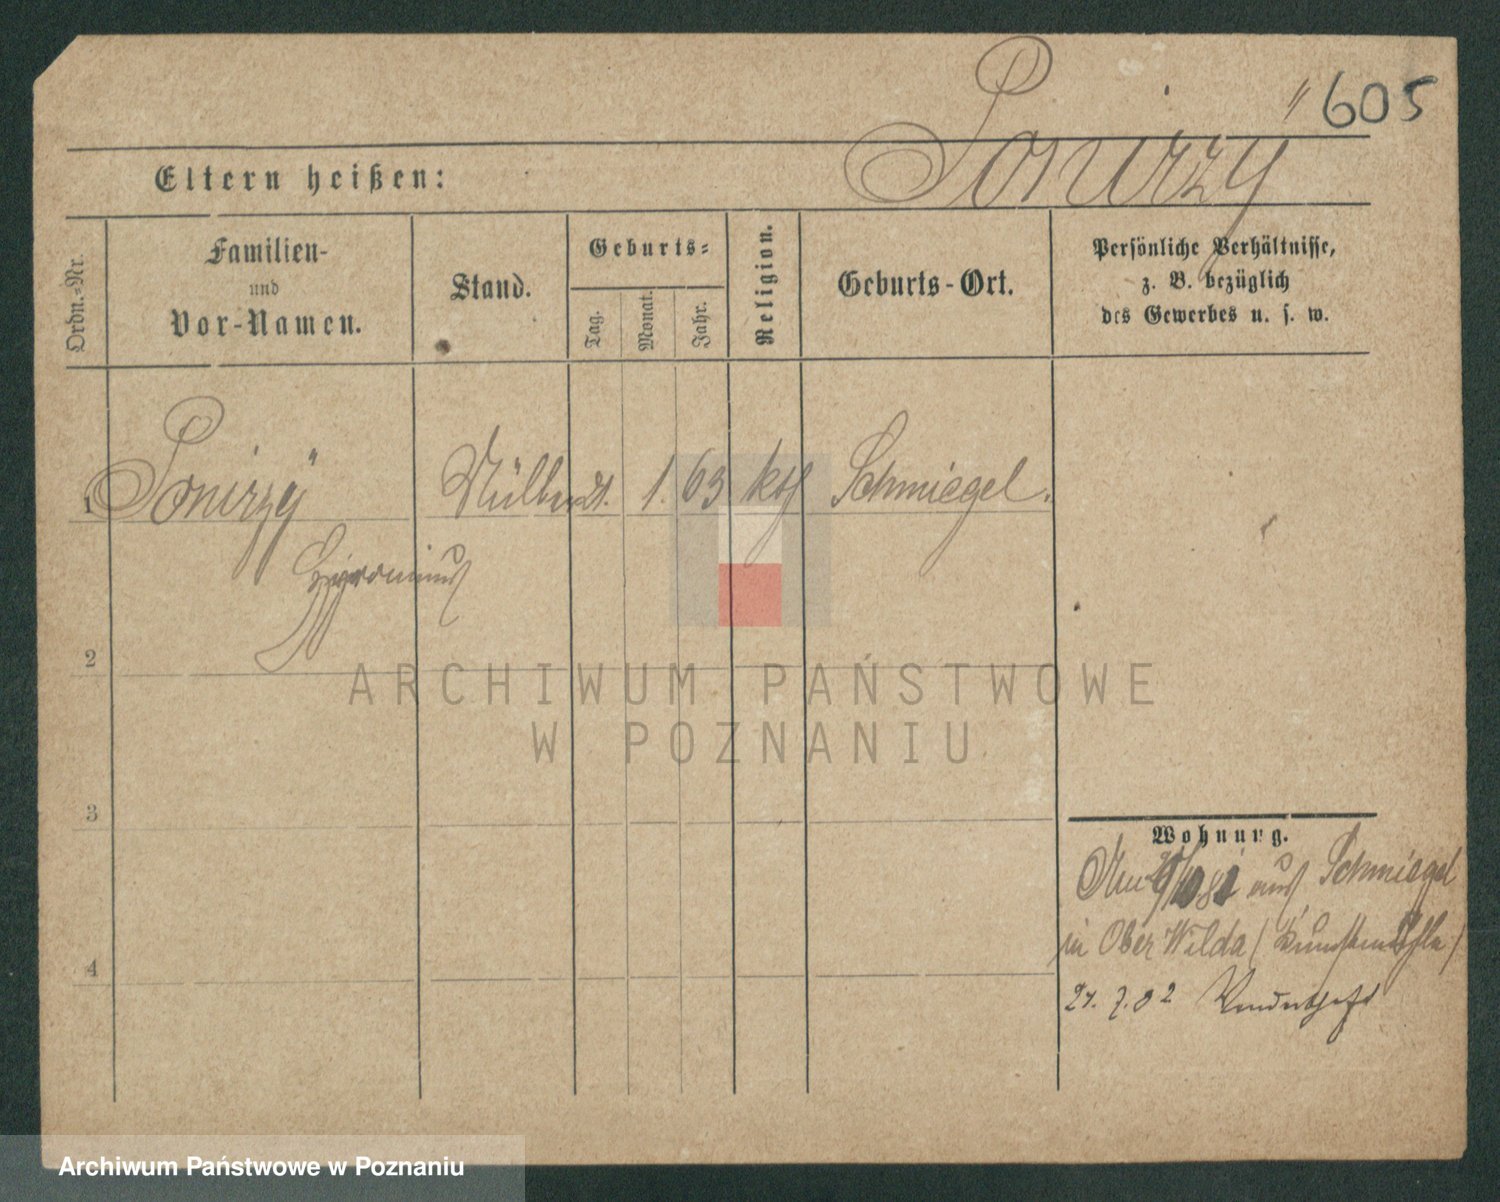 605
Ponirzy
Eltern heißen:
Ordn.-Nr.
Familien-
und
Vor-Namen.
Stand.
Geburts-
Tag.
Monat.
Jahr.
Religion.
Geburts-Ort.
Persönliche Verhältnisse,
z. B. bezüglich
des Gewerbes u. s. w.
1 Ponirzy Müller 21. 1. 63 kth Schmiegel.
2
3
4
ARCHIWUM PAŃSTWOWE
W POZNANIU
Wohnung.
aus Schmiegel
in Ober Wilda (Kunstmühle)
21. 7. 82
Archiwum Państwowe w Poznaniu